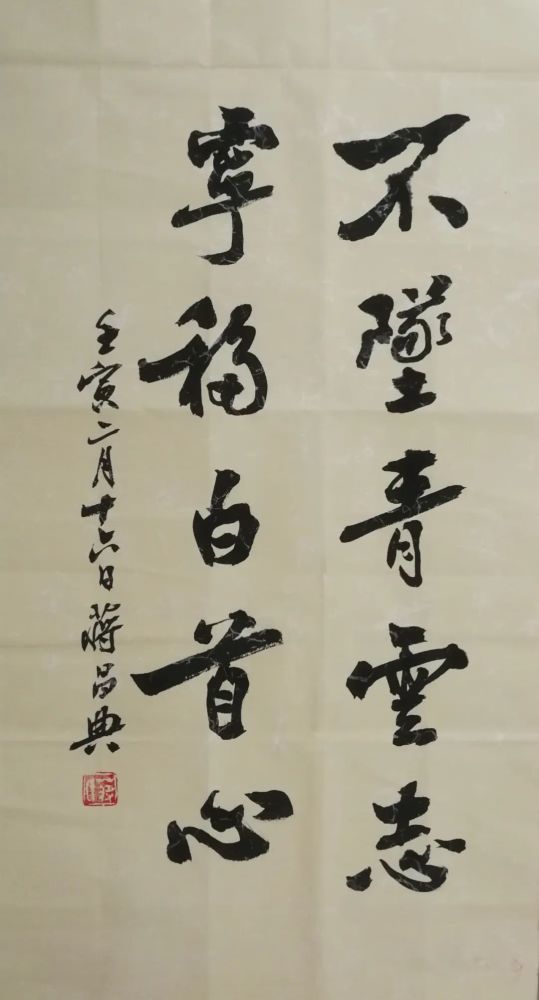 不墜青雲志
寧移白首心
壬寅二月十六日蔣昌典